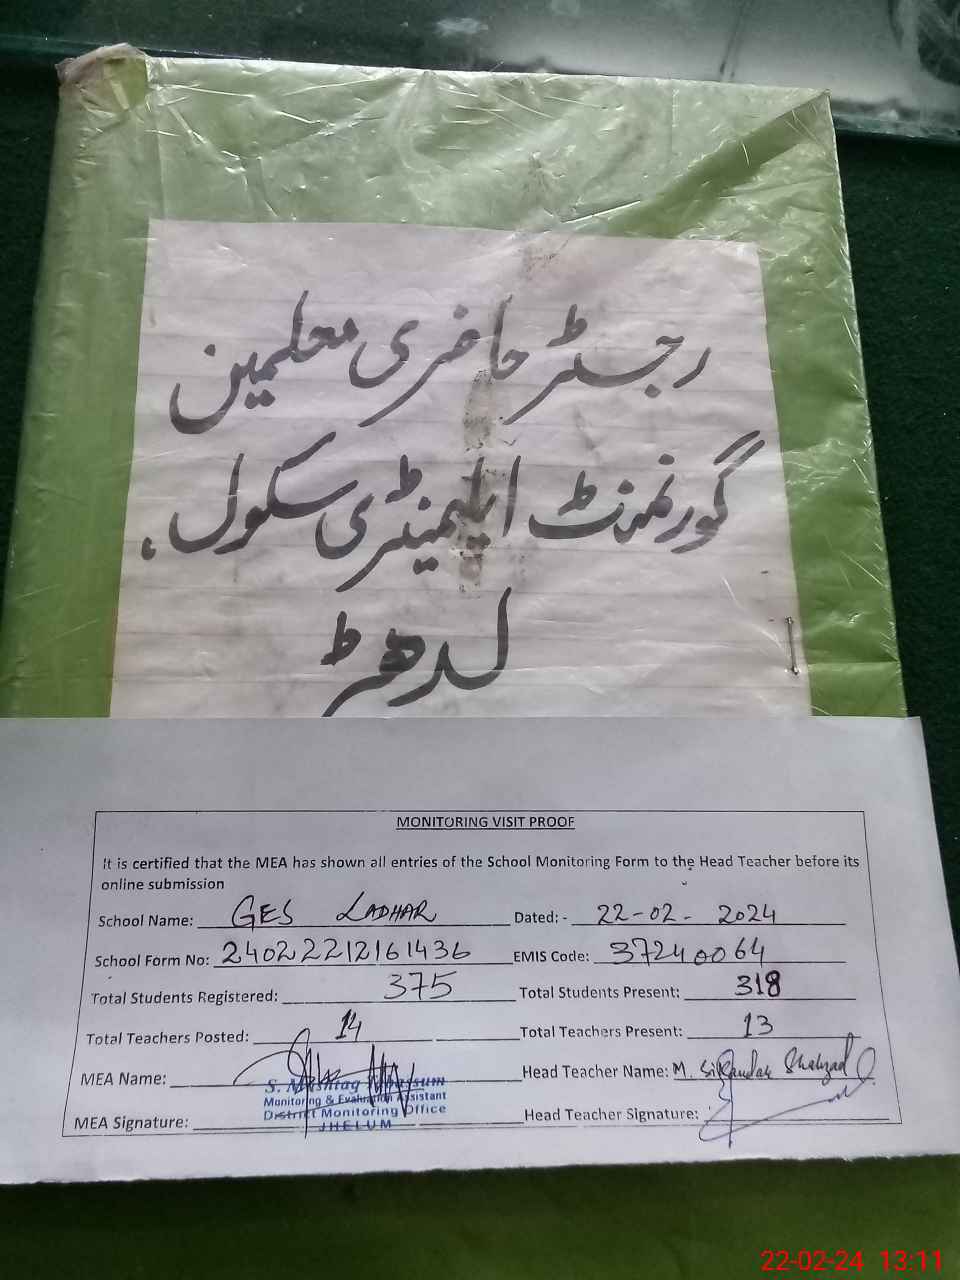 رجسٹر حاضری معلمین
گورنمنٹ ایلیمنٹری سکول،
لدھڑ
MONITORING VISIT PROOF
It is certified that the MEA has shown all entries of the School Monitoring Form to the Head Teacher before its
online submission
School Name: GES LADHAR Dated: - 22-02-2024
School Form No: 24022212161436 EMIS Code: 37240064
Total Students Registered: 375 Total Students Present: 318
Total Teachers Posted: 14 Total Teachers Present: 13
MEA Name: Head Teacher Name: M. Sikandar Shahzad
S. Mushtaq
Monitoring & Evaluation Assistant
District Monitoring Office
JHELUM
MEA Signature: Head Teacher Signature:
22-02-24 13:11